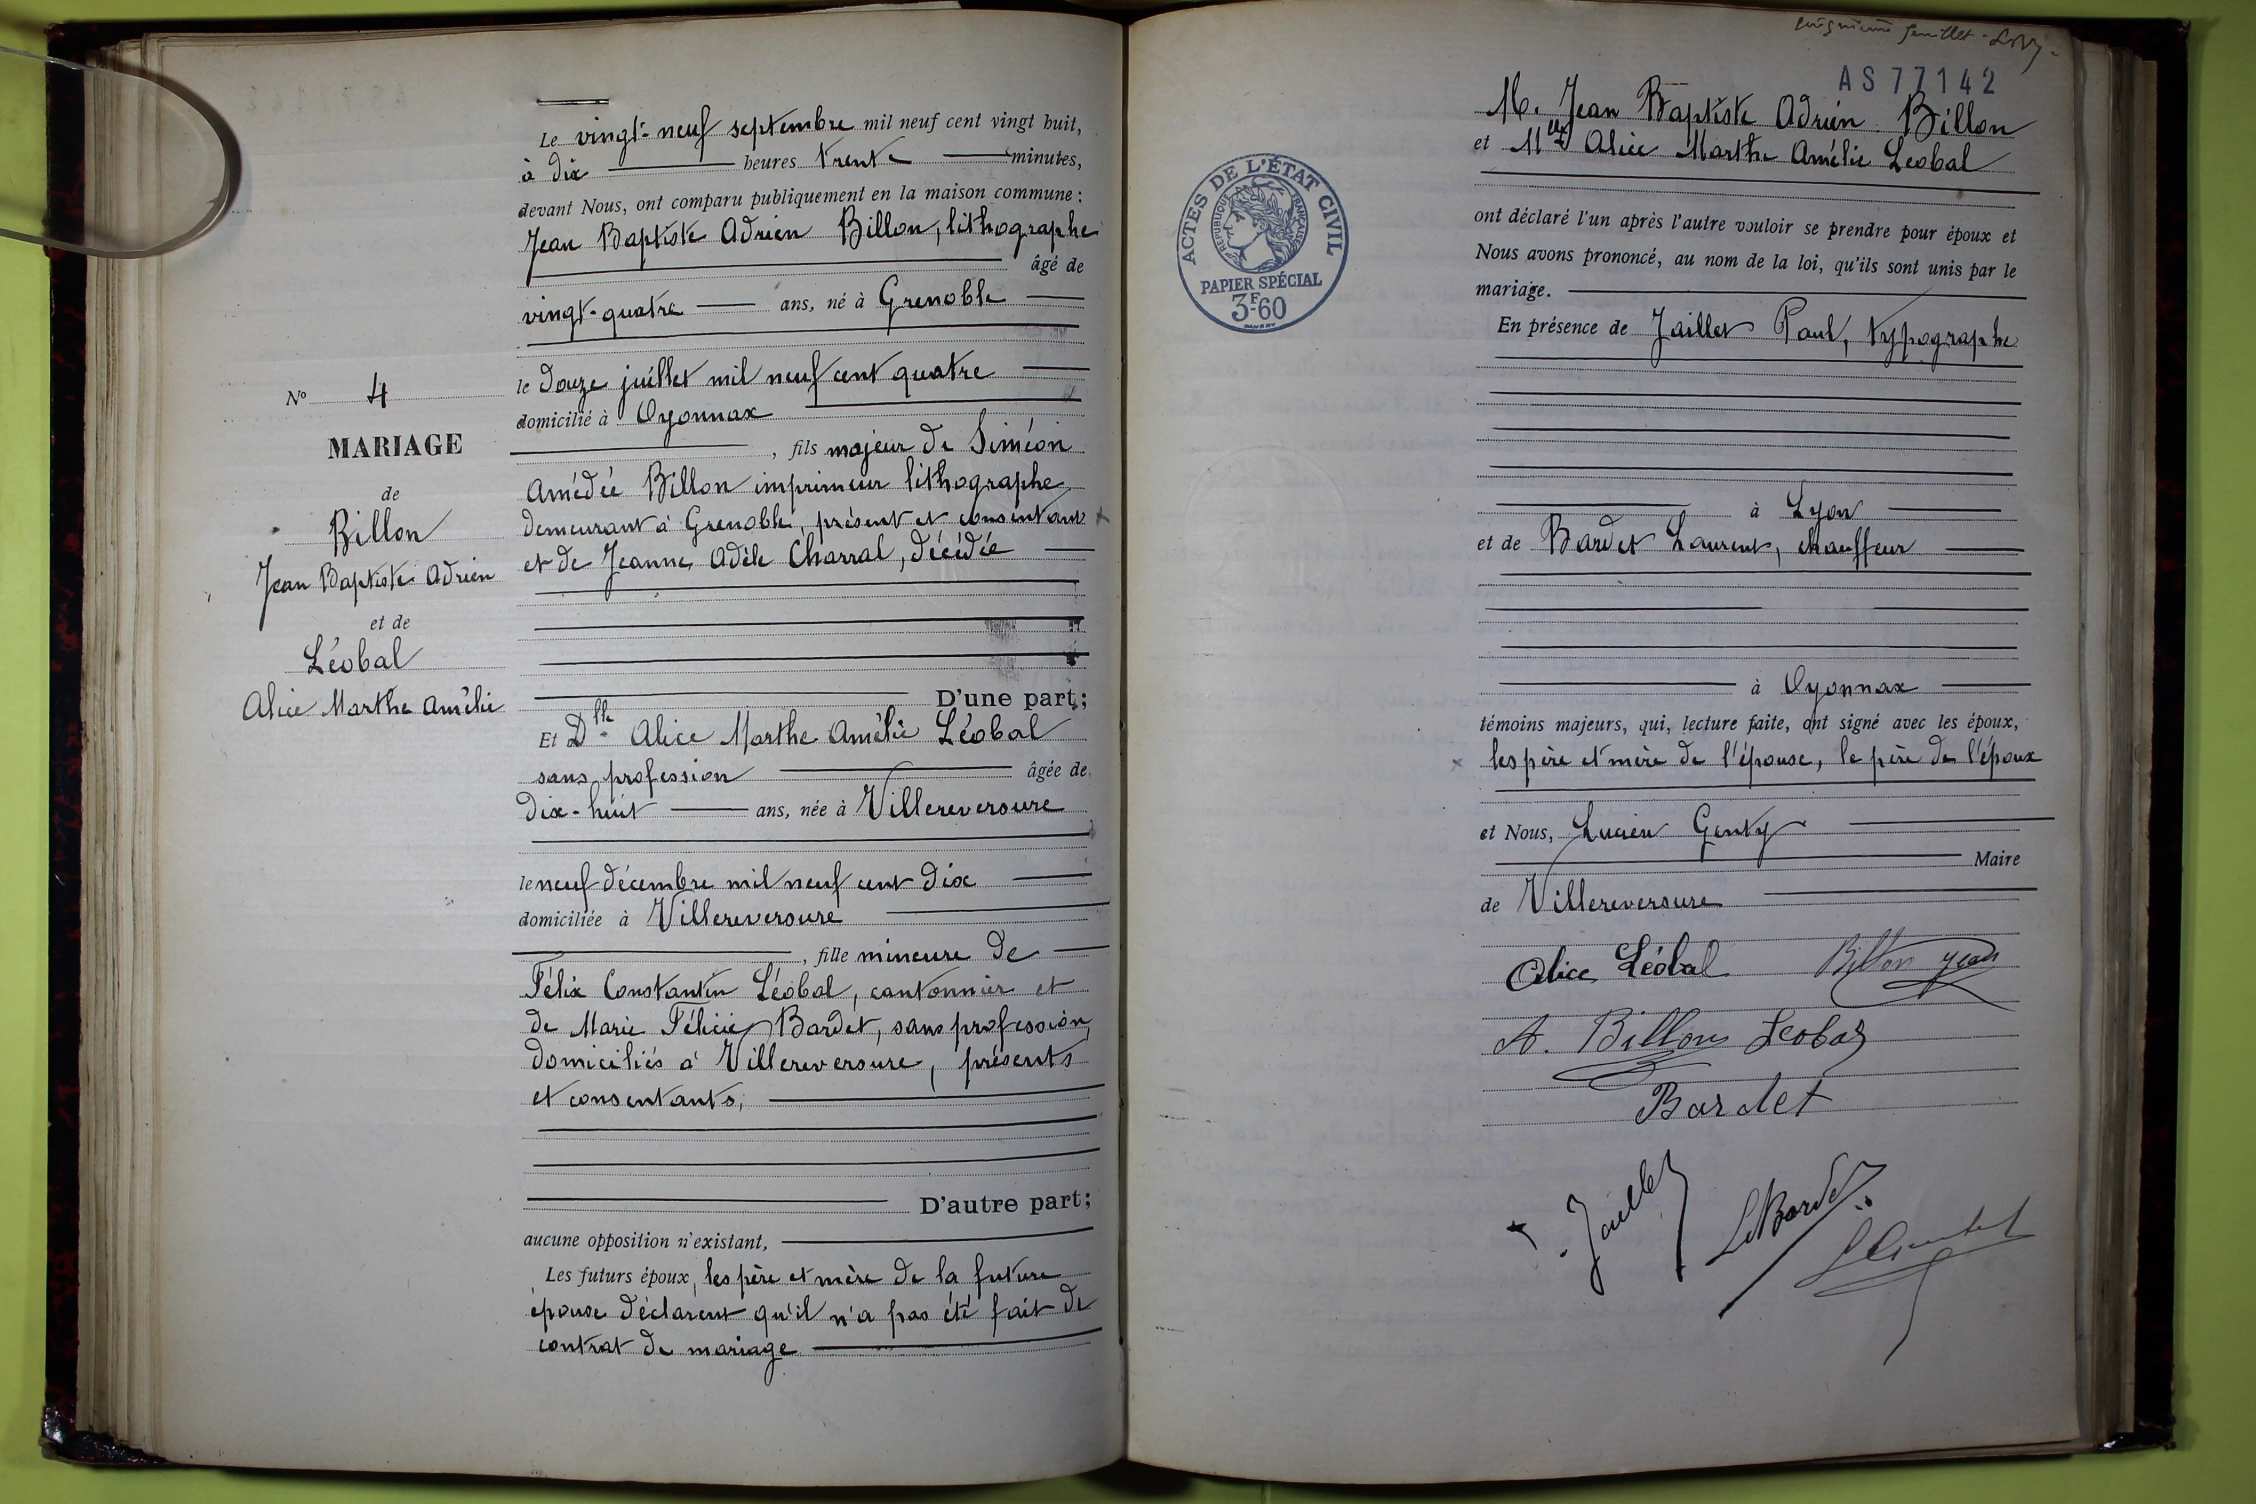 Le vingt-neuf septembre mil neuf cent vingt huit,
à dix heures trente minutes,
devant Nous, ont comparu publiquement en la maison commune :
Jean Baptiste Adrien Billon, lithographe
âgé de
vingt-quatre ans, né à Grenoble
le douze juillet mil neuf cent quatre
domicilié à Oyonnax
, fils majeur de Siméon
Amédée Billon imprimeur lithographe
demeurant à Grenoble, présent et consentant
et de Jeanne Adèle Charral, décédée
D'une part;
Et Dlle Alice Marthe Amélie Léobal
sans profession âgée de
dix-huit ans, née à Villereversure
le neuf décembre mil neuf cent dix
domiciliée à Villereversure
, fille mineure de
Félix Constantin Léobal, cantonnier et
de Marie Félicie Bardet, sans profession,
domiciliés à Villereversure, présents
et consentants,
D'autre part;
aucune opposition n'existant,
Les futurs époux, les père et mère de la future
épouse déclarent qu'il n'a pas été fait de
contrat de mariage
No 4
MARIAGE
de
Billon
Jean Baptiste Adrien
et de
Léobal
Alice Marthe Amélie
feuillet
AS77142
ACTES DE L'ÉTAT CIVIL
RÉPUBLIQUE FRANÇAISE
PAPIER SPÉCIAL
3F60
M. Jean Baptiste Adrien Billon
et Mlle Alice Marthe Amélie Leobal
ont déclaré l'un après l'autre vouloir se prendre pour époux et
Nous avons prononcé, au nom de la loi, qu'ils sont unis par le
mariage.
En présence de Jaillet Paul, typographe
à Lyon
et de Bardet Laurent, chauffeur
à Oyonnax
témoins majeurs, qui, lecture faite, ont signé avec les époux,
les père et mère de l'épouse, le père de l'époux
et Nous, Lucien Genty
Maire
de Villereversure
Alice Léobal Billon Jean
A. Billon Leobal
Bardet
Jaillet L Bardet